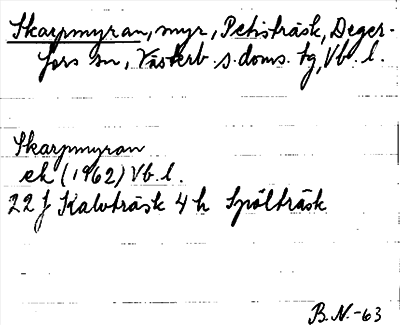 Skarpmyran, myr, Petisträsk, Deger-
fors sn, Västerb. s. doms. tg, Vb. l.
Skarpmyran
ek (1962) Vb. l.
22 J Kalvträsk 4 h Spölträsk
B.N.-63